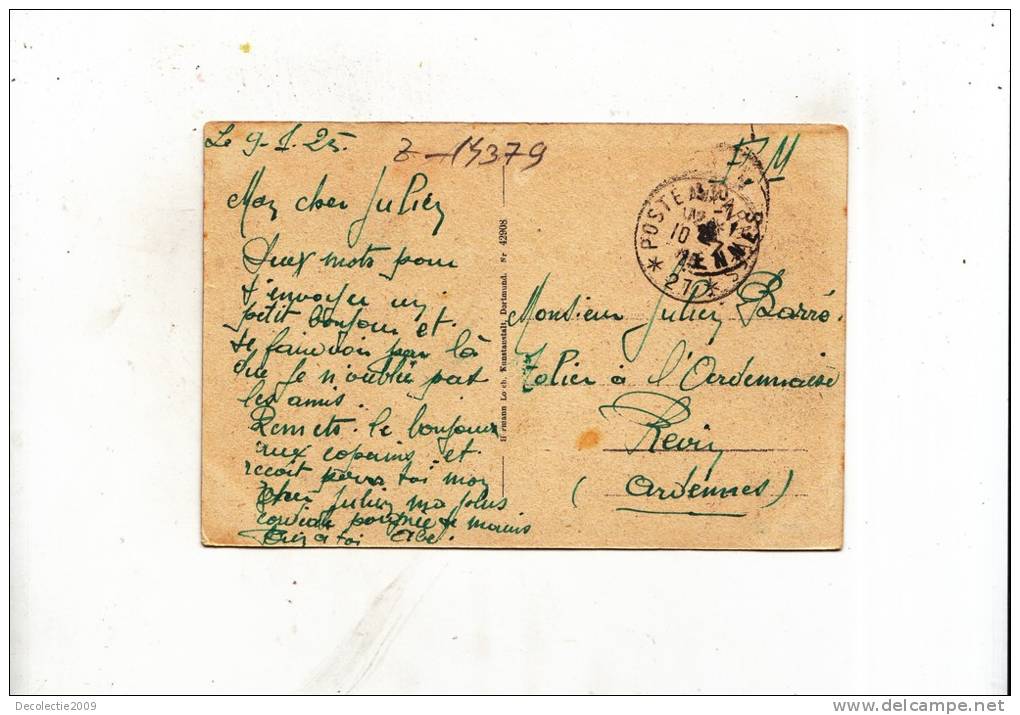 Le 9-1-25.
Z-14379
F M
Mon cher Julien
Deux mots pour
t'envoyer un
petit bonjour et
te faire voir par là
que je n'oublie pas
les amis.
Remets le bonjour
aux copains et
reçoit pour toi mon
cher Julien ma plus
cordiale poignée de mains
à toi
Hermann Lorch, Kunstanstalt, Dortmund. Nr 42908
* POSTE AUX ARMEES *
10
27
Monsieur Julien Barré.
à l'Ardennaise
Revin
(Ardennes)
Decolectie2009
www.delcampe.net